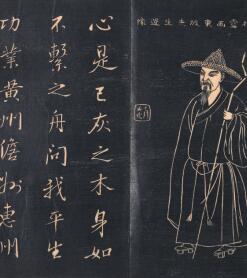 雪画東坡先生遺像
心是已灰之木身如
不繫之舟問我平生
功業黄州儋州惠州